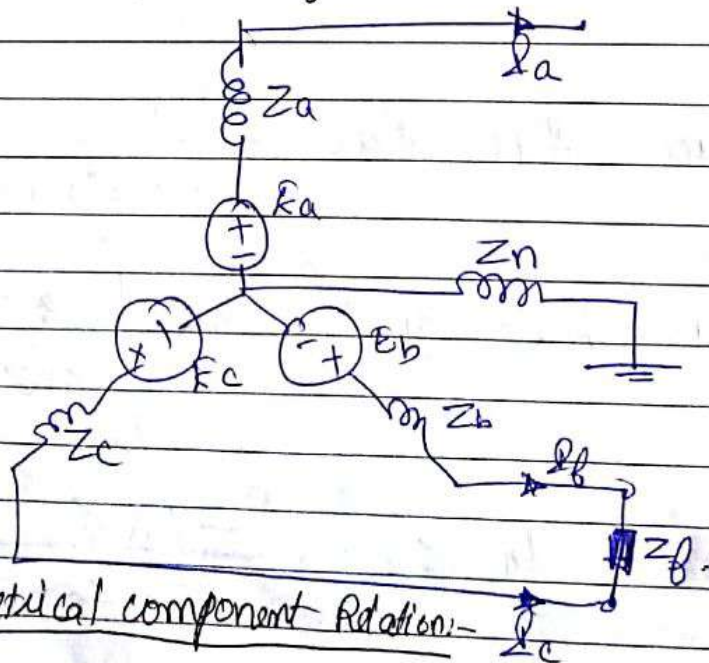 Ia
Za
Ea
Zn
Ec
Eb
Zc
Zb
If
Zf
etrical component Relation:-
Ic